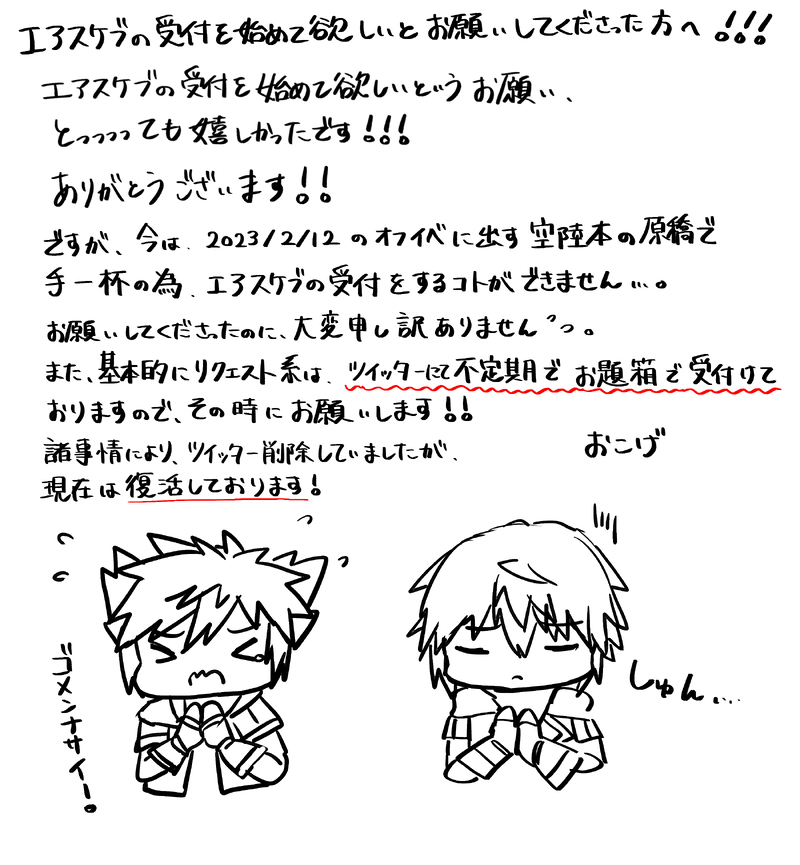 エアスケブの受付を始めて欲しいとお願いしてくださった方へ!!!
エアスケブの受付を始めて欲しいというお願い、
とっっっっても嬉しかったです!!!
ありがとうございます!!
ですが、今は、2023/2/12のオフイベに出す空陸本の原稿で
手一杯の為、エアスケブの受付をするコトができません…。
お願いしてくださったのに、大変申し訳ありませんっっ。
また、基本的にリクエスト系は、ツイッターにて不定期でお題箱で受付けて
おりますので、その時にお願いします!!
諸事情により、ツイッター削除していましたが、
現在は復活しております!
おこげ
ゴメンナサイー。
しゅん…